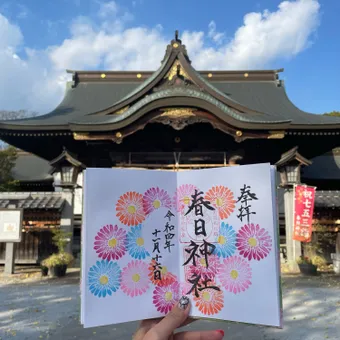 奉拝
春日神社
令和四年
十一月十六日
祝七五三